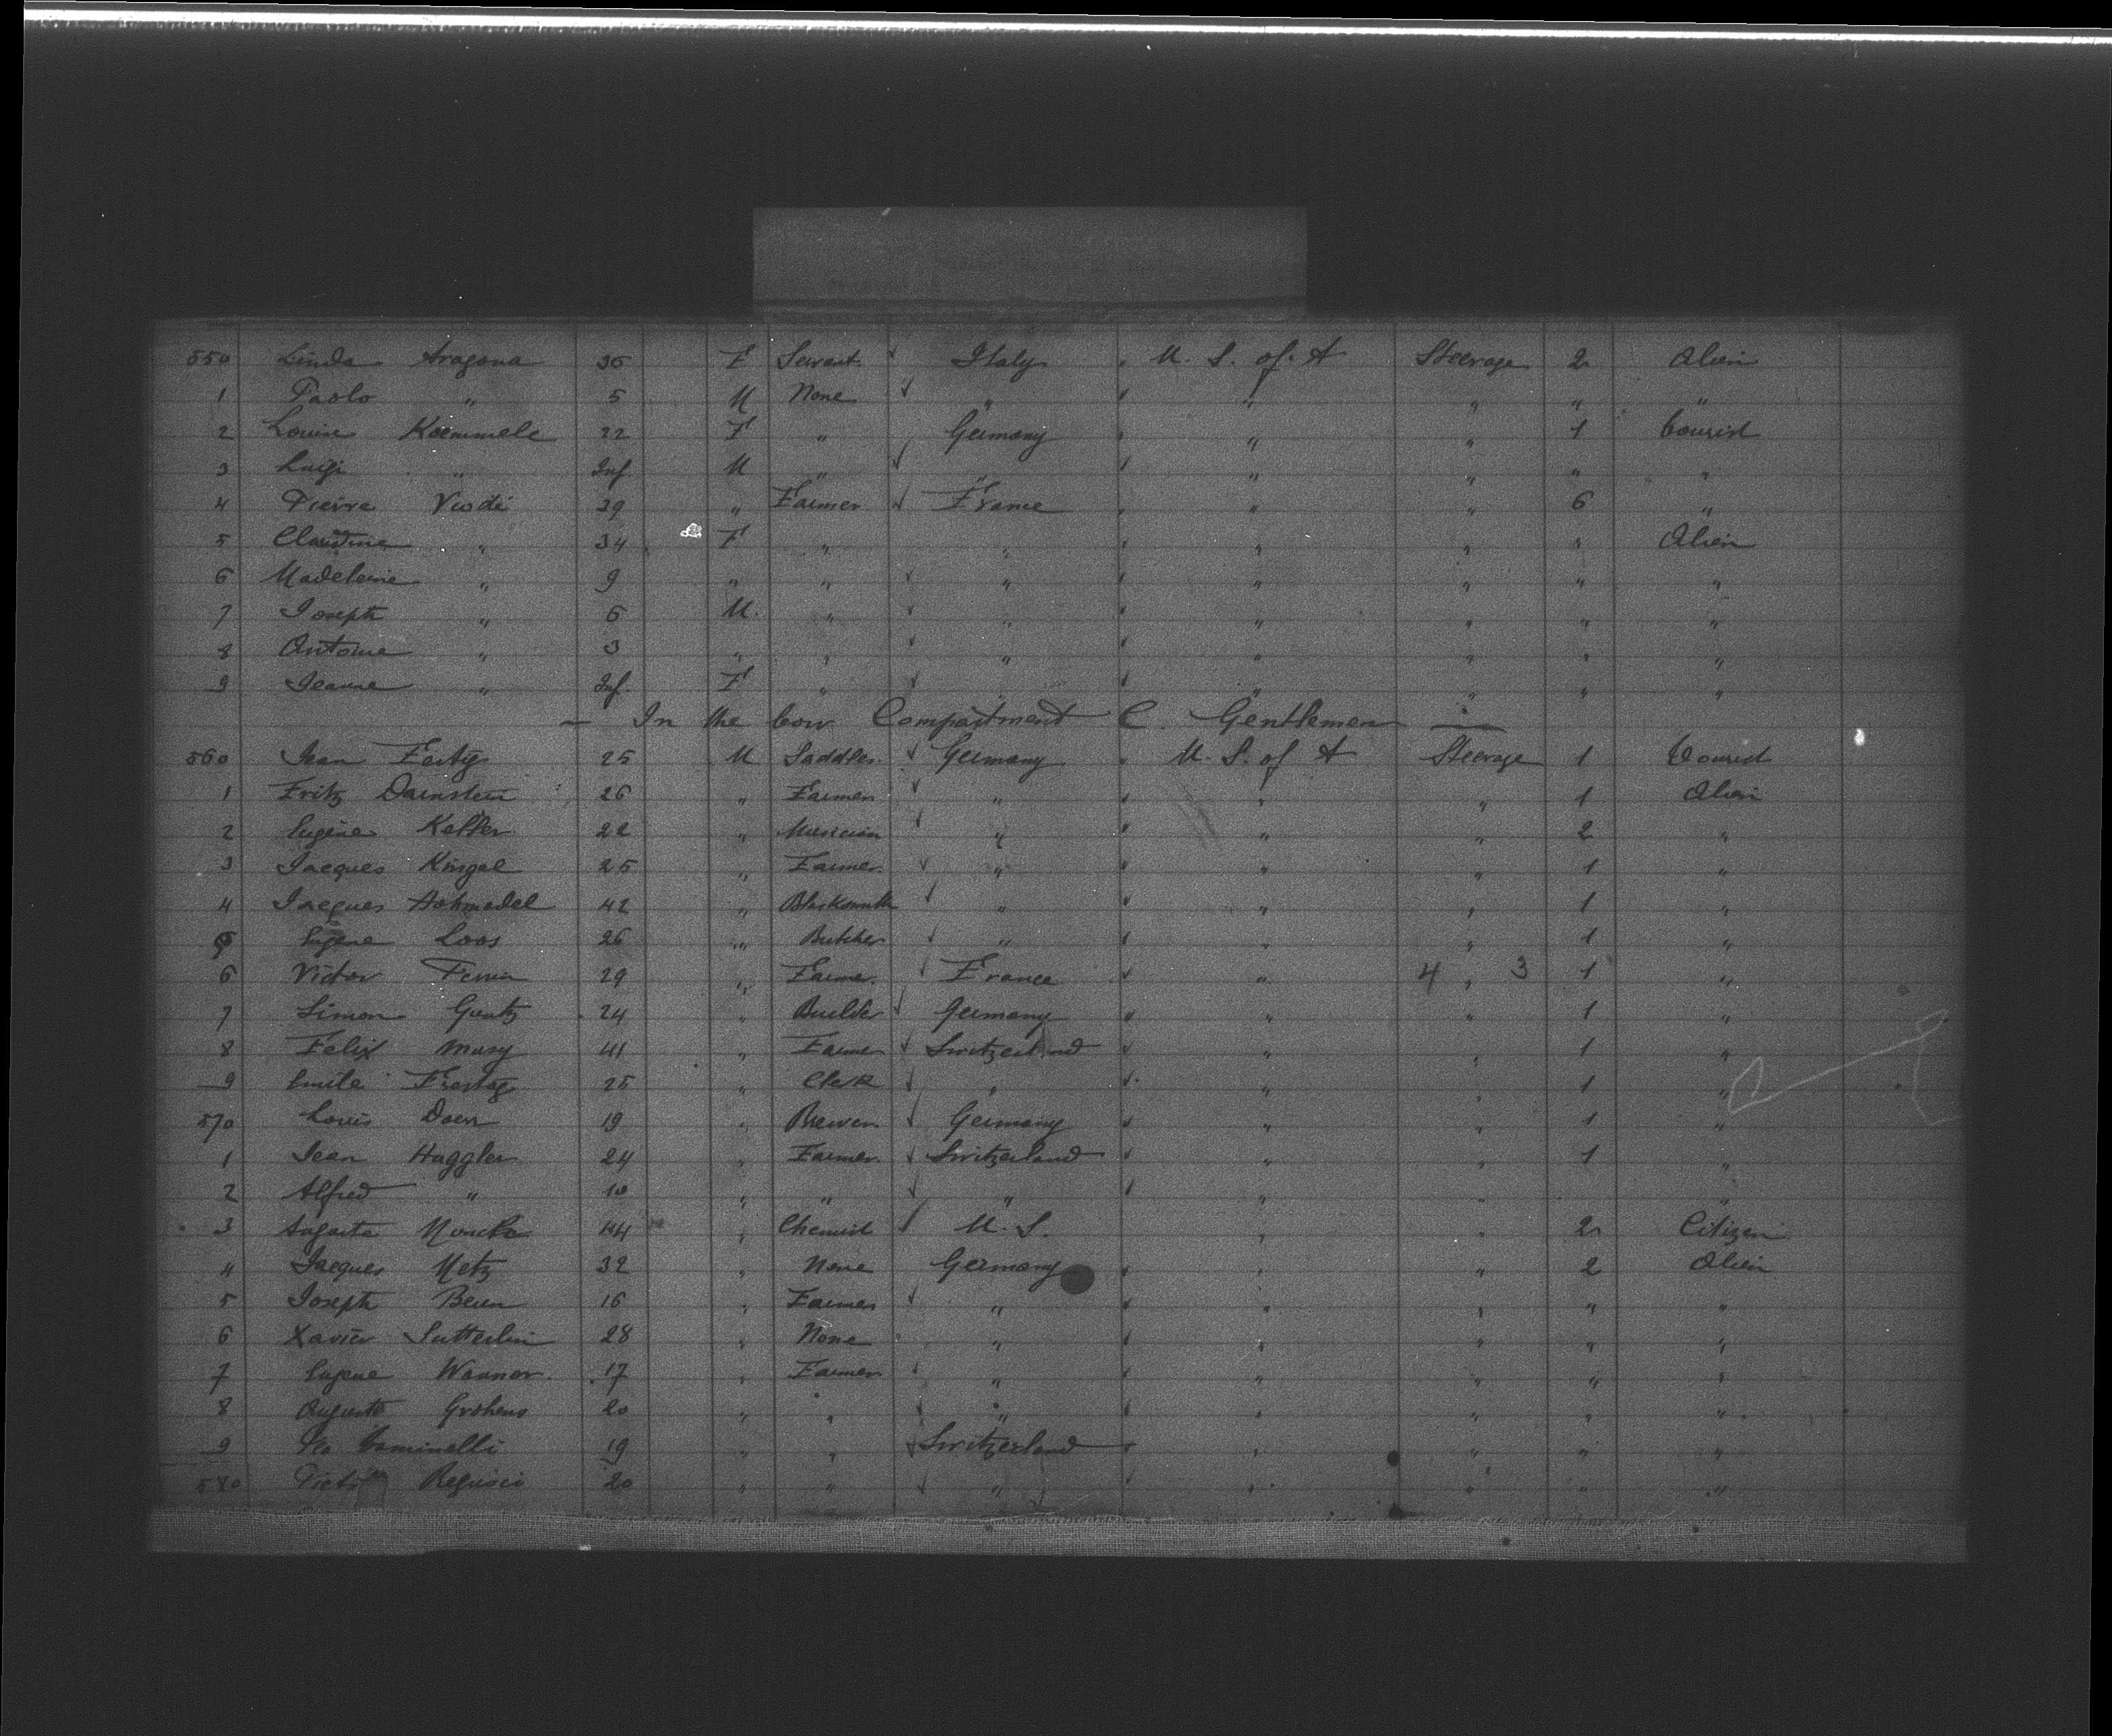 550 Linda Aragona 36 F Servant Italy U. S. of A Steerage 2 Alien
1 Paolo " 5 M None " " " " "
2 Louise Koemmele 22 F " Germany " " 1 Tourist
3 Luigi " Inf. M " " " " " "
4 Pierre Viodi 39 " Farmer France " " 6 "
5 Claudine " 34 F " " " " " Alien
6 Madeleine " 9 " " " " " " "
7 Joseph " 6 M. " " " " " "
8 Antoine " 3 " " " " " " "
9 Jeanne " Inf. F " " " " " "
— In the bow Compartment C. Gentlemen —
560 Jean Fertig 25 M Saddler Germany U. S. of A Steerage 1 Tourist
1 Fritz Darnstein 26 " Farmer " " " 1 Alien
2 Eugène Keller 22 " Musician " " " 2 "
3 Jacques Kingel 25 " Farmer " " " 1 "
4 Jacques Hohmedel 42 " Blacksmith " " " 1 "
5 Eugene Loos 26 " Butcher " " " 1 "
6 Victor Perrin 29 " Farmer France " 4 " 3 1 "
7 Simon Guntz 24 " Builder Germany " " 1 "
8 Felix Musy 41 " Farmer Switzerland " " 1 "
9 Emile Freytag 25 " Clerk " " " 1 "
570 Louis Doerr 19 " Brewer Germany " " 1 "
1 Jean Huggler 24 " Farmer Switzerland " " 1 "
2 Alfred " 10 " " " " " "
3 44 " Chemist U. S. " " 2 Citizen
4 Jacques Metz 32 " None Germany " " 2 Alien
5 Joseph 16 " Farmer " " " " "
6 Xavier Sutterlin 28 " None " " " " "
7 Eugene Wanner 17 " Farmer " " " " "
8 Auguste Grohens 20 " " " " " " "
9 19 " " Switzerland " " " "
580 Regusci 20 " " " " " " "